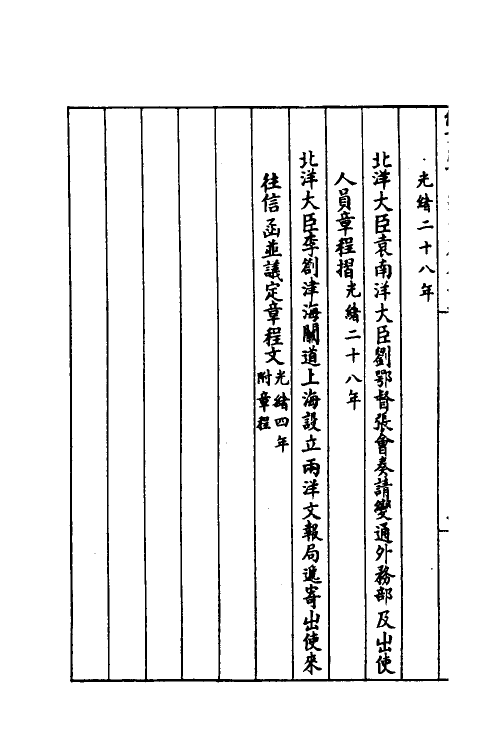 光緒二十八年
北洋大臣袁南洋大臣劉鄂督張會奏請變通外務部及出使
人員章程摺光緒二十八年
北洋大臣李劄津海關道上海設立兩洋文報局遞寄出使來
往信函並議定章程文光緒四年附章程